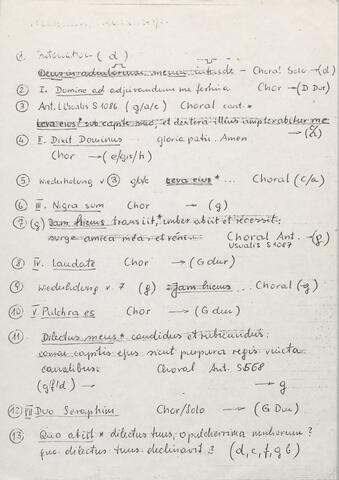 ① Intonation (d)
Deus in adiutorium meum intende - Choral Solo → (d)
② I. Domine ad adjuvandum me festina Chor → (D Dur)
③ Ant. Usualis S 1086 (g/a/c) Choral cant.*
Leva eius* sub capite meo, et dextera illius amplexabitur me
④ II. Dixit Dominus gloria patri. Amen → (a)
Chor → (e/gis/h)
⑤ Wiederholung v. ③ g/a/c Leva eius* ... Choral (c/a)
⑥ III. Nigra sum Chor → (g)
⑦ (g) Jam hiems transiit,* imber abiit et recessit:
surge amica mea, et veni.. Choral Ant. → (g)
Usualis S 1087
⑧ IV. Laudate Chor → (G dur)
⑨ Wiederholung v. 7 (g) Jam hiems ... Choral (g)
⑩ V. Pulchra es Chor → (G dur)
⑪ Dilectus meus* candidus et rubicundus:
capitis ejus sicut purpura regis vincta
canalibus: Choral Ant. S 568
(g/d) → g
⑫ VII Duo Seraphim Chor/Solo → (G Dur)
⑬ Quo abiit* dilectus tuus, o pulcherrima mulierum?
quo dilectus tuus declinavit? (d, c, f, g b)